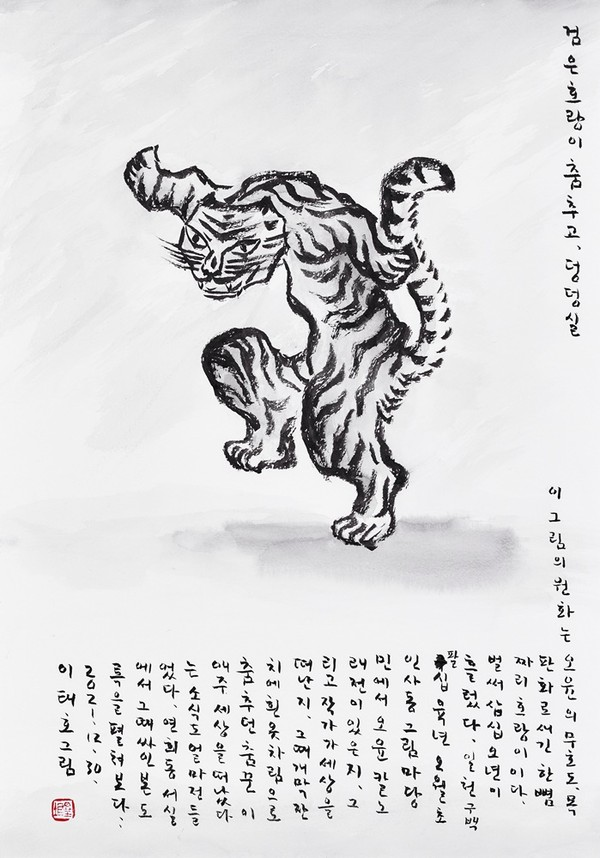 검은호랑이 춤추고, 덩덩실
이그림의원화는 오윤의 무호도, 목
판화로 새긴 한뼘
짜리 호랑이이다.
벌써 삼십오년이
흘렀다. 일천구백
팔십육년 오월초
인사동 그림마당
민에서 오윤 칼노
래전이 있은지, 그
리고 작가가 세상을
떠난지, 그때 개막잔
치에 흰옷차림으로
춤추던 춤꾼 이
애주 세상을 떠났다
는 소식도 얼마전 들
었다. 연희동 서실
에서 그때 싸인본 도
록을 펼쳐보다.
2021.12.30.
이태호 그림